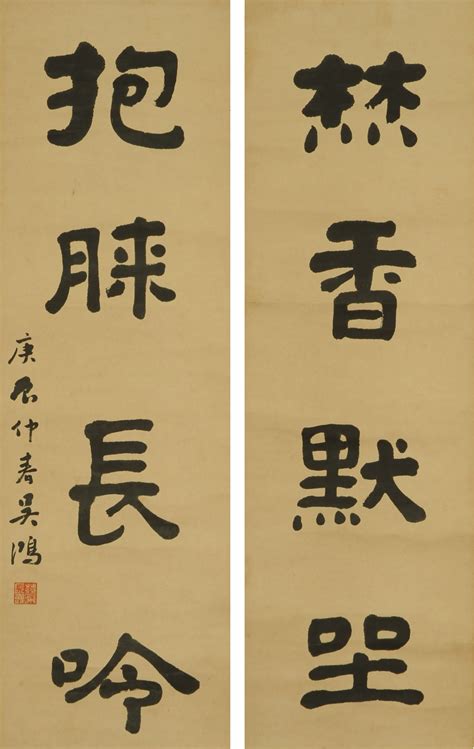 焚香默坐
抱膝長吟
庚辰仲春吳鴻